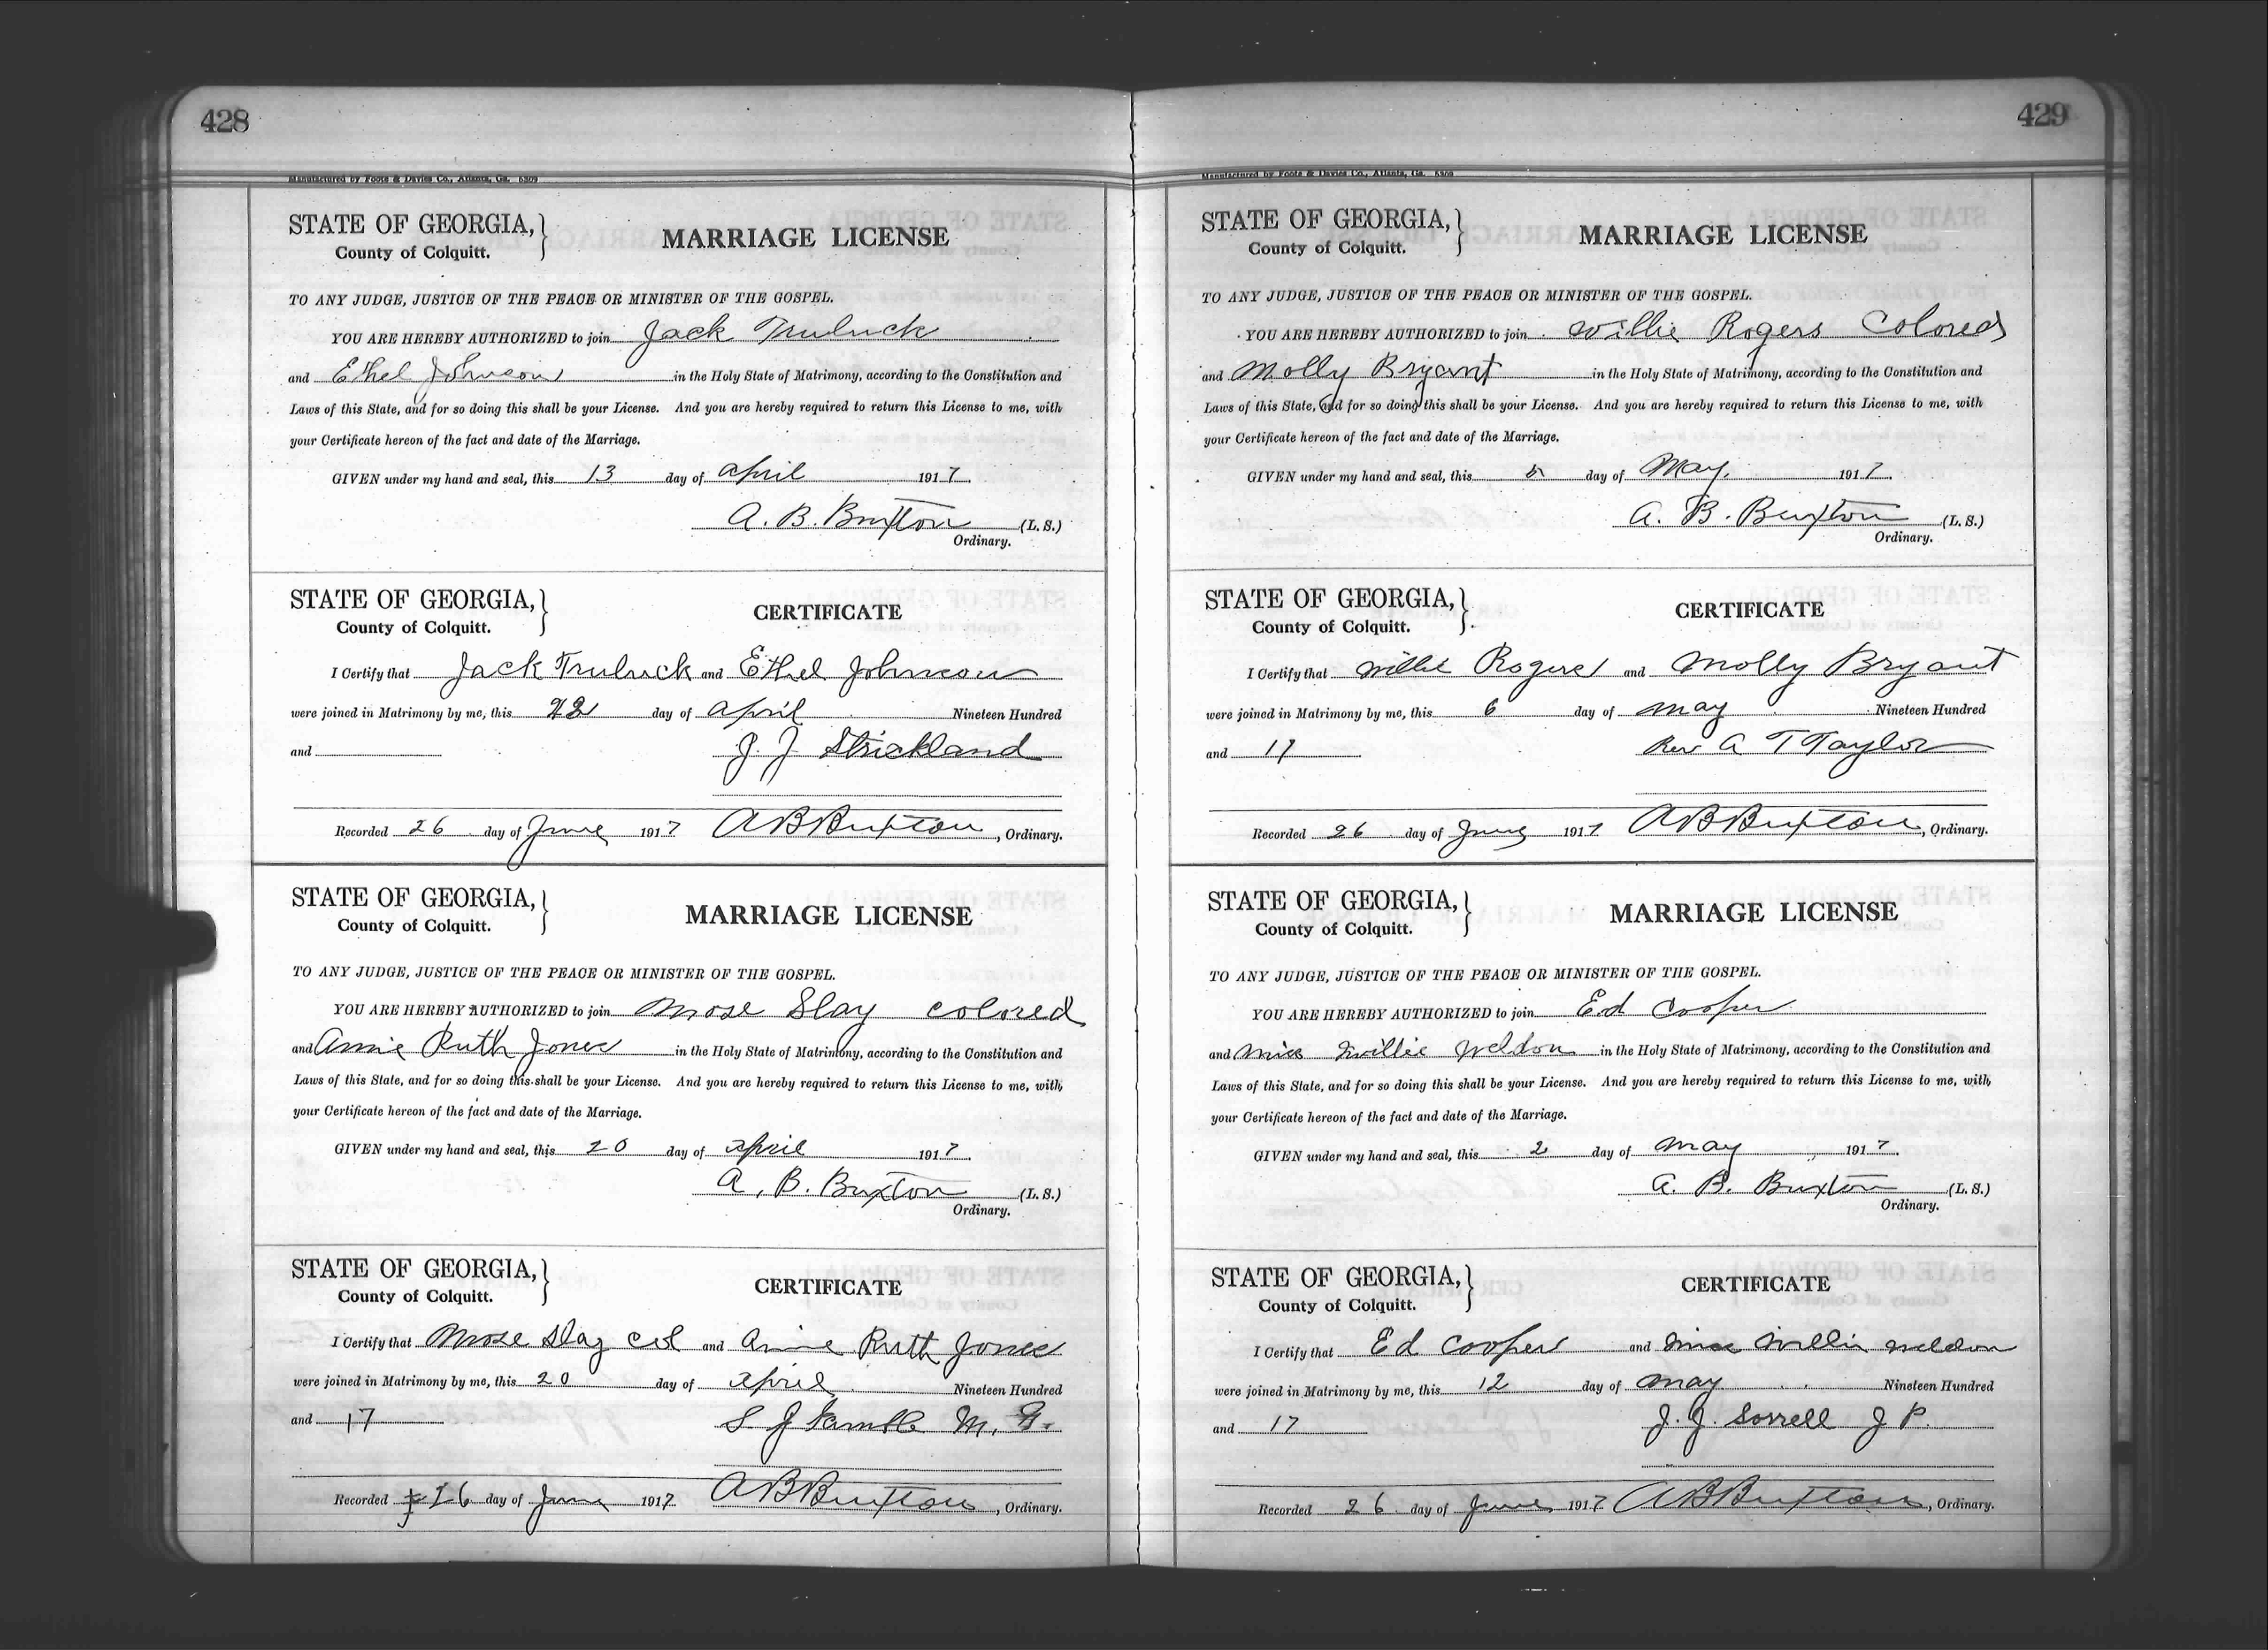 428
Manufactured by Foote & Davies Co., Atlanta, Ga. 5309
STATE OF GEORGIA,
County of Colquitt.
MARRIAGE LICENSE
TO ANY JUDGE, JUSTICE OF THE PEACE OR MINISTER OF THE GOSPEL.
YOU ARE HEREBY AUTHORIZED to join Jack Truluck
and Ethel Johnson in the Holy State of Matrimony, according to the Constitution and
Laws of this State, and for so doing this shall be your License. And you are hereby required to return this License to me, with
your Certificate hereon of the fact and date of the Marriage.
GIVEN under my hand and seal, this 13 day of april 1917.
A. B. Buxton (L. S.)
Ordinary.
STATE OF GEORGIA,
County of Colquitt.
CERTIFICATE
I Certify that Jack Truluck and Ethel Johnson
were joined in Matrimony by me, this 22 day of april Nineteen Hundred
and J. J. Strickland
Recorded 26 day of June 1917 A B Buxton, Ordinary.
STATE OF GEORGIA,
County of Colquitt.
MARRIAGE LICENSE
TO ANY JUDGE, JUSTICE OF THE PEACE OR MINISTER OF THE GOSPEL.
YOU ARE HEREBY AUTHORIZED to join Mose Slay colored
and Annie Ruth Jones in the Holy State of Matrimony, according to the Constitution and
Laws of this State, and for so doing this shall be your License. And you are hereby required to return this License to me, with
your Certificate hereon of the fact and date of the Marriage.
GIVEN under my hand and seal, this 20 day of april 1917.
A. B. Buxton (L. S.)
Ordinary.
STATE OF GEORGIA,
County of Colquitt.
CERTIFICATE
I Certify that Mose Slay col and Annie Ruth Jones
were joined in Matrimony by me, this 20 day of april Nineteen Hundred
and 17 S J M. G.
Recorded 26 day of June 1917 A B Buxton, Ordinary.
429
Manufactured by Foote & Davies Co., Atlanta, Ga. 5309
STATE OF GEORGIA,
County of Colquitt.
MARRIAGE LICENSE
TO ANY JUDGE, JUSTICE OF THE PEACE OR MINISTER OF THE GOSPEL.
YOU ARE HEREBY AUTHORIZED to join Willie Rogers Colored
and Molly Bryant in the Holy State of Matrimony, according to the Constitution and
Laws of this State, and for so doing this shall be your License. And you are hereby required to return this License to me, with
your Certificate hereon of the fact and date of the Marriage.
GIVEN under my hand and seal, this 5 day of May. 1917.
A. B. Buxton (L. S.)
Ordinary.
STATE OF GEORGIA,
County of Colquitt.
CERTIFICATE
I Certify that Willie Rogers and Molly Bryant
were joined in Matrimony by me, this 6 day of may Nineteen Hundred
and 17 Rev A T Taylor
Recorded 26 day of June 1917 A B Buxton, Ordinary.
STATE OF GEORGIA,
County of Colquitt.
MARRIAGE LICENSE
TO ANY JUDGE, JUSTICE OF THE PEACE OR MINISTER OF THE GOSPEL.
YOU ARE HEREBY AUTHORIZED to join Ed Cooper
and Miss Willie Weldon in the Holy State of Matrimony, according to the Constitution and
Laws of this State, and for so doing this shall be your License. And you are hereby required to return this License to me, with
your Certificate hereon of the fact and date of the Marriage.
GIVEN under my hand and seal, this 2 day of may 1917.
A. B. Buxton (L. S.)
Ordinary.
STATE OF GEORGIA,
County of Colquitt.
CERTIFICATE
I Certify that Ed Cooper and Miss Willie Weldon
were joined in Matrimony by me, this 12 day of may Nineteen Hundred
and 17 J. J. Sorrell J P.
Recorded 26 day of June 1917 A B Buxton, Ordinary.